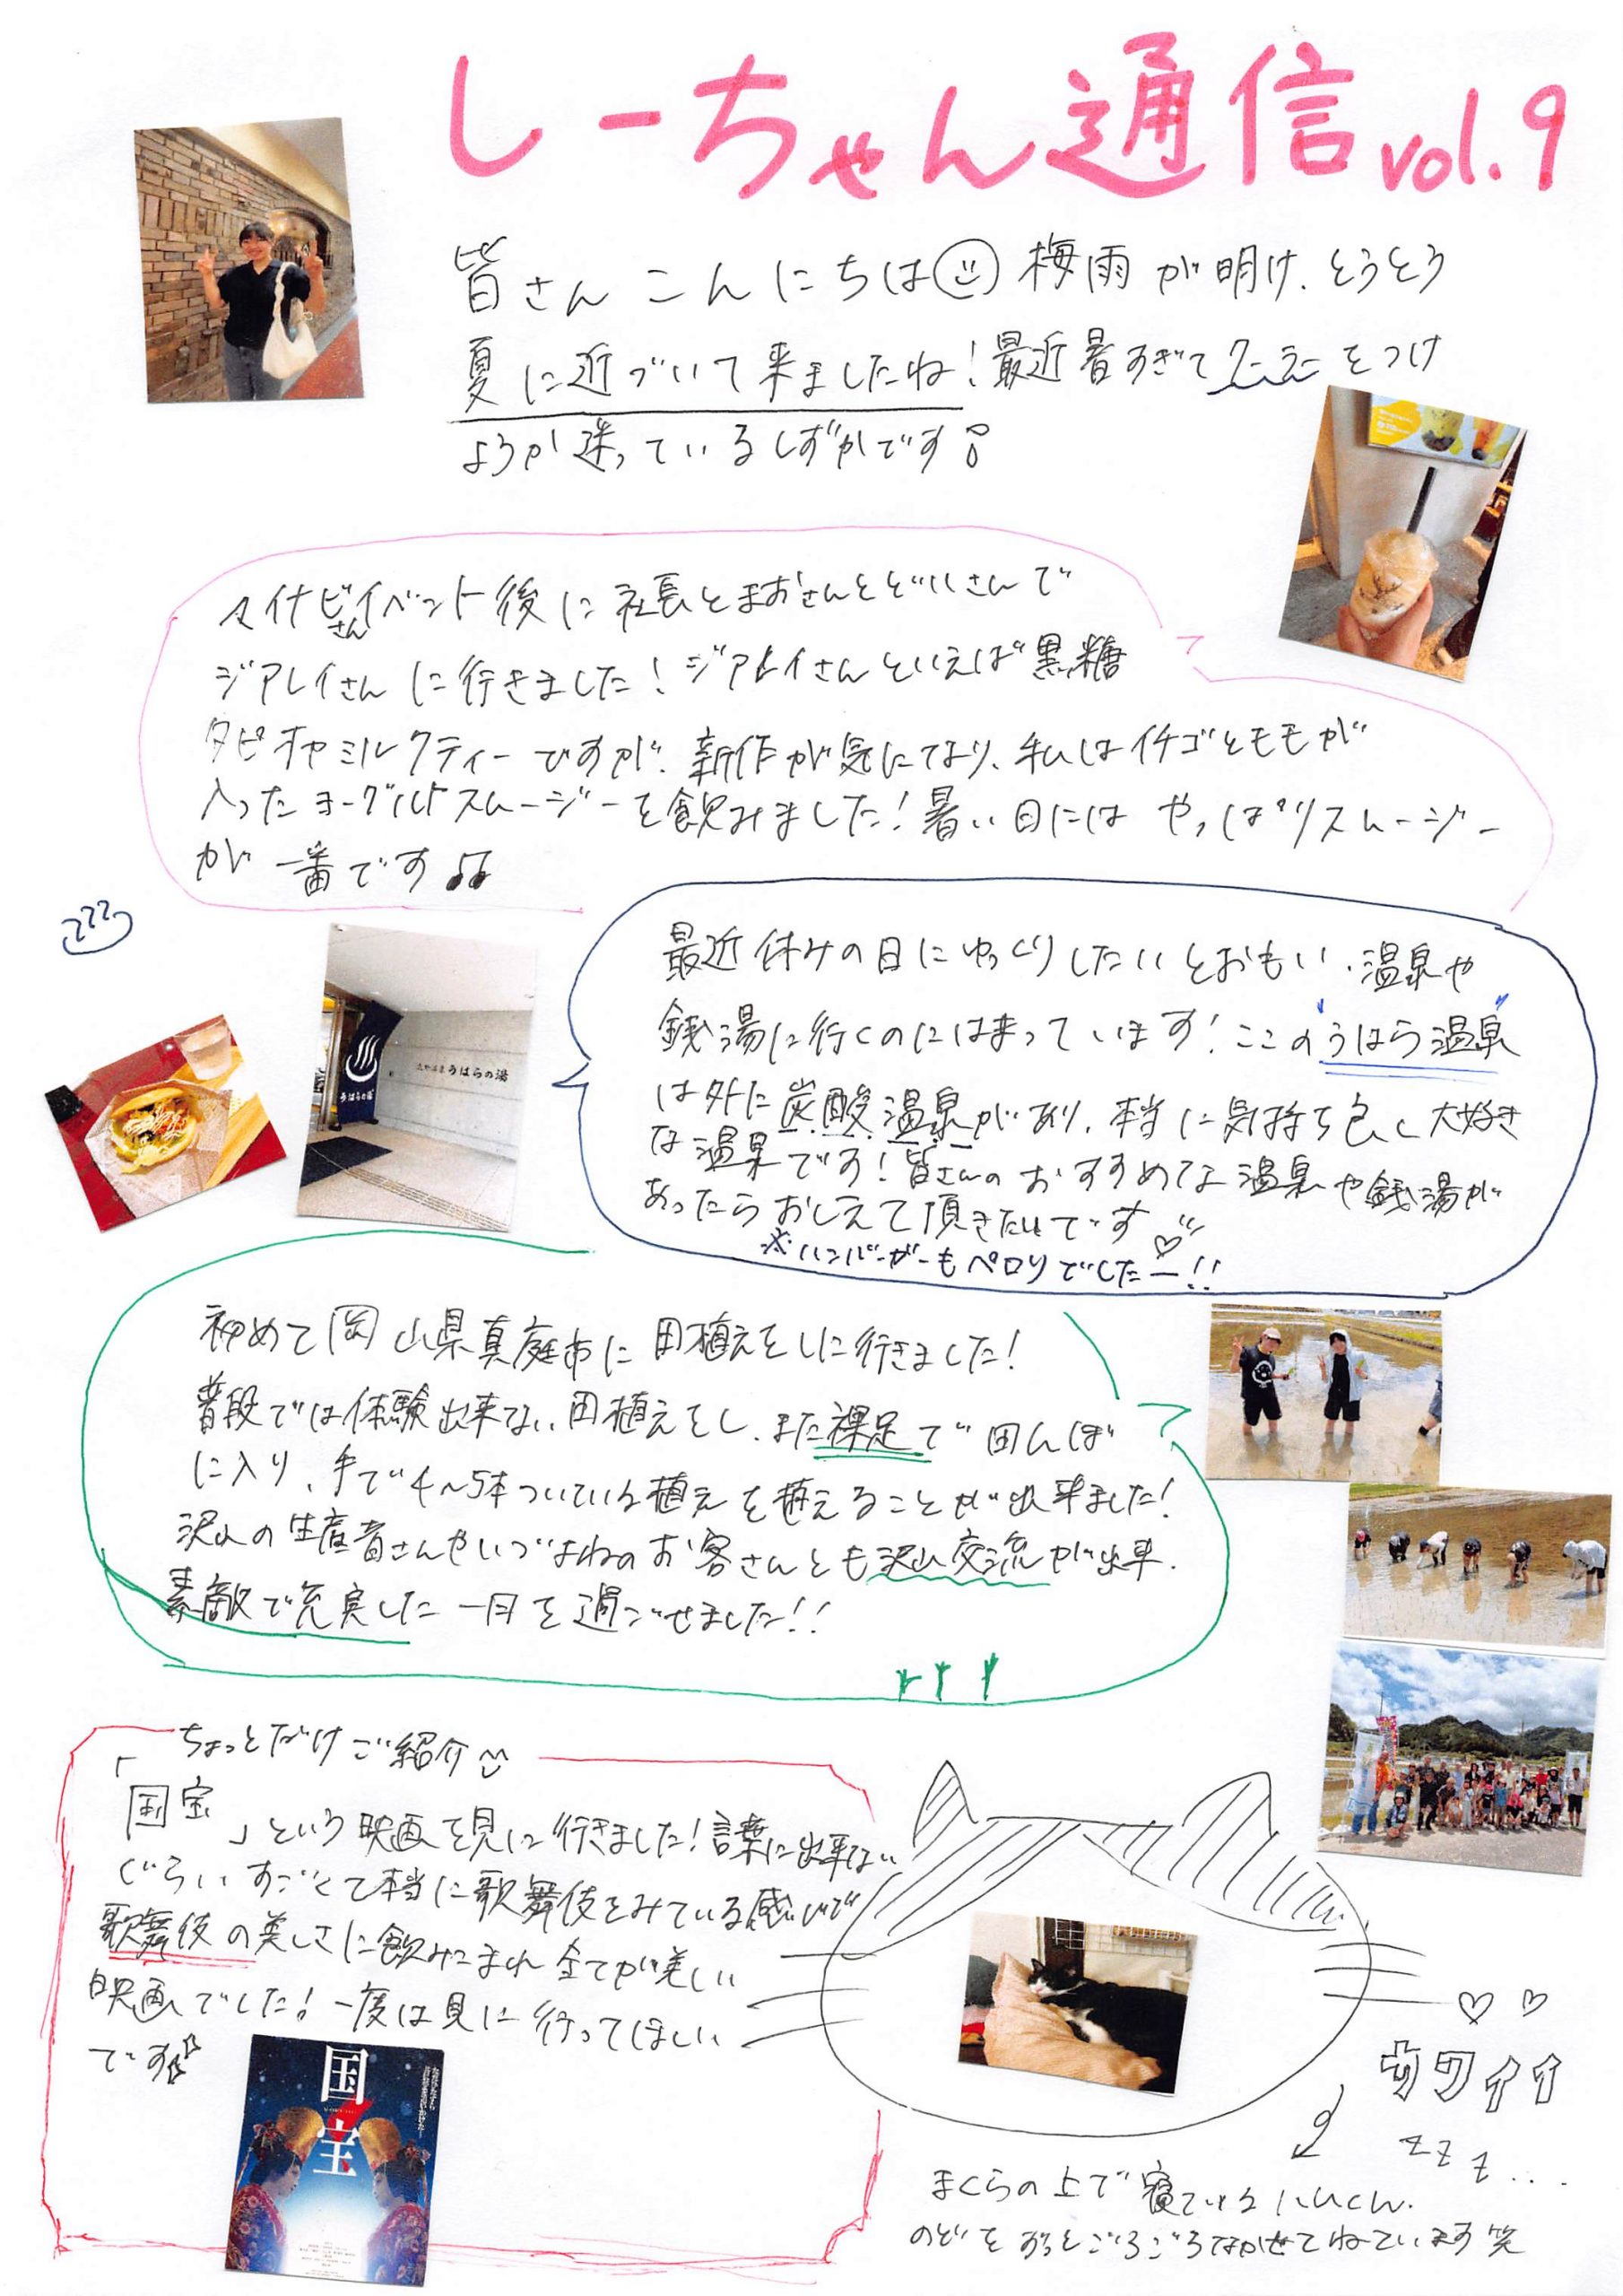 しーちゃん通信 vol.9
皆さん こんにちは 梅雨が明け、とうとう
夏に近づいて来ましたね！最近暑すぎてクーラーをつけ
ようか迷っているしずかです
マイナビさんイベント後に社長とまおさんとぞいさんで
ジアレイさんに行きました！ジアレイさんといえば黒糖
タピオカミルクティーですが、新作が気になり、私はイチゴとモモが
入ったヨーグルトスムージーを飲みました！暑い日には やっぱりスムージー
が一番です♫
最近休みの日にゆっくりしたいとおもい、温泉や
銭湯に行くのにはまっています！ここの"うはら温泉"
は外に炭酸温泉があり、本当に気持ち良く大好き
な温泉です！皆さんのおすすめな温泉や銭湯が
あったらおしえて頂きたいです♡
※ハンバーガーもペロリでしたー!!
うはらの湯
うはらの湯
初めて岡山県真庭市に田植えをしに行きました！
普段では体験出来ない田植えをし、また裸足で田んぼ
に入り、手で4〜5本ついている植えを植えることが出来ました！
沢山の生産者さんやいづよねのお客さんとも沢山交流が出来、
素敵で充実した一日を過ごせました！！
ちょっとだけご紹介
「国宝」という映画を見に行きました！言葉に出来ない
ぐらいすごくて本当に歌舞伎をみている感じで
歌舞伎の美しさに飲みこまれ全てが美しい
映画でした！一度は見に行ってほしい
です
国宝
カワイイ
zzz...
まくらの上で寝ているにいくん。
のどをずっとごろごろなかせてねています笑